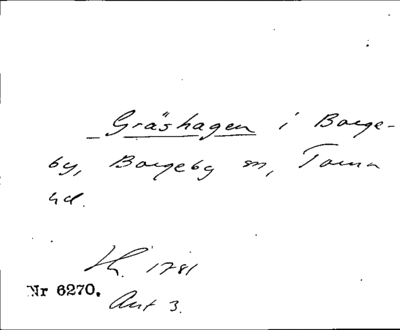 Gräshagen i Borge-
by, Borgeby sn, Torna
hd.
Lh. 1781
Nr 6270.
Akt 3.